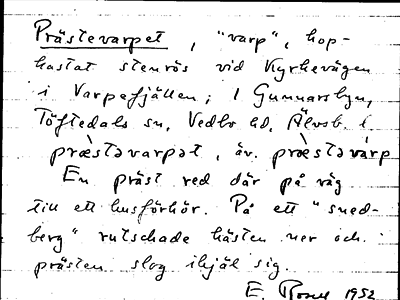 Prästevarpet, "varp", hop-
kastat stenrös vid Kyrkevägen
i Varpefjällen; i Gunnarsbyn,
Töftedals sn, Vedbo hd, Älvsb. l
præ̀stəvarpət, äv. præ̀stəvàrp
En präst red där på väg
till ett husförhör. På ett "sned-
berg" rutschade hästen ner och
prästen slog ihjäl sig.
E. 1952